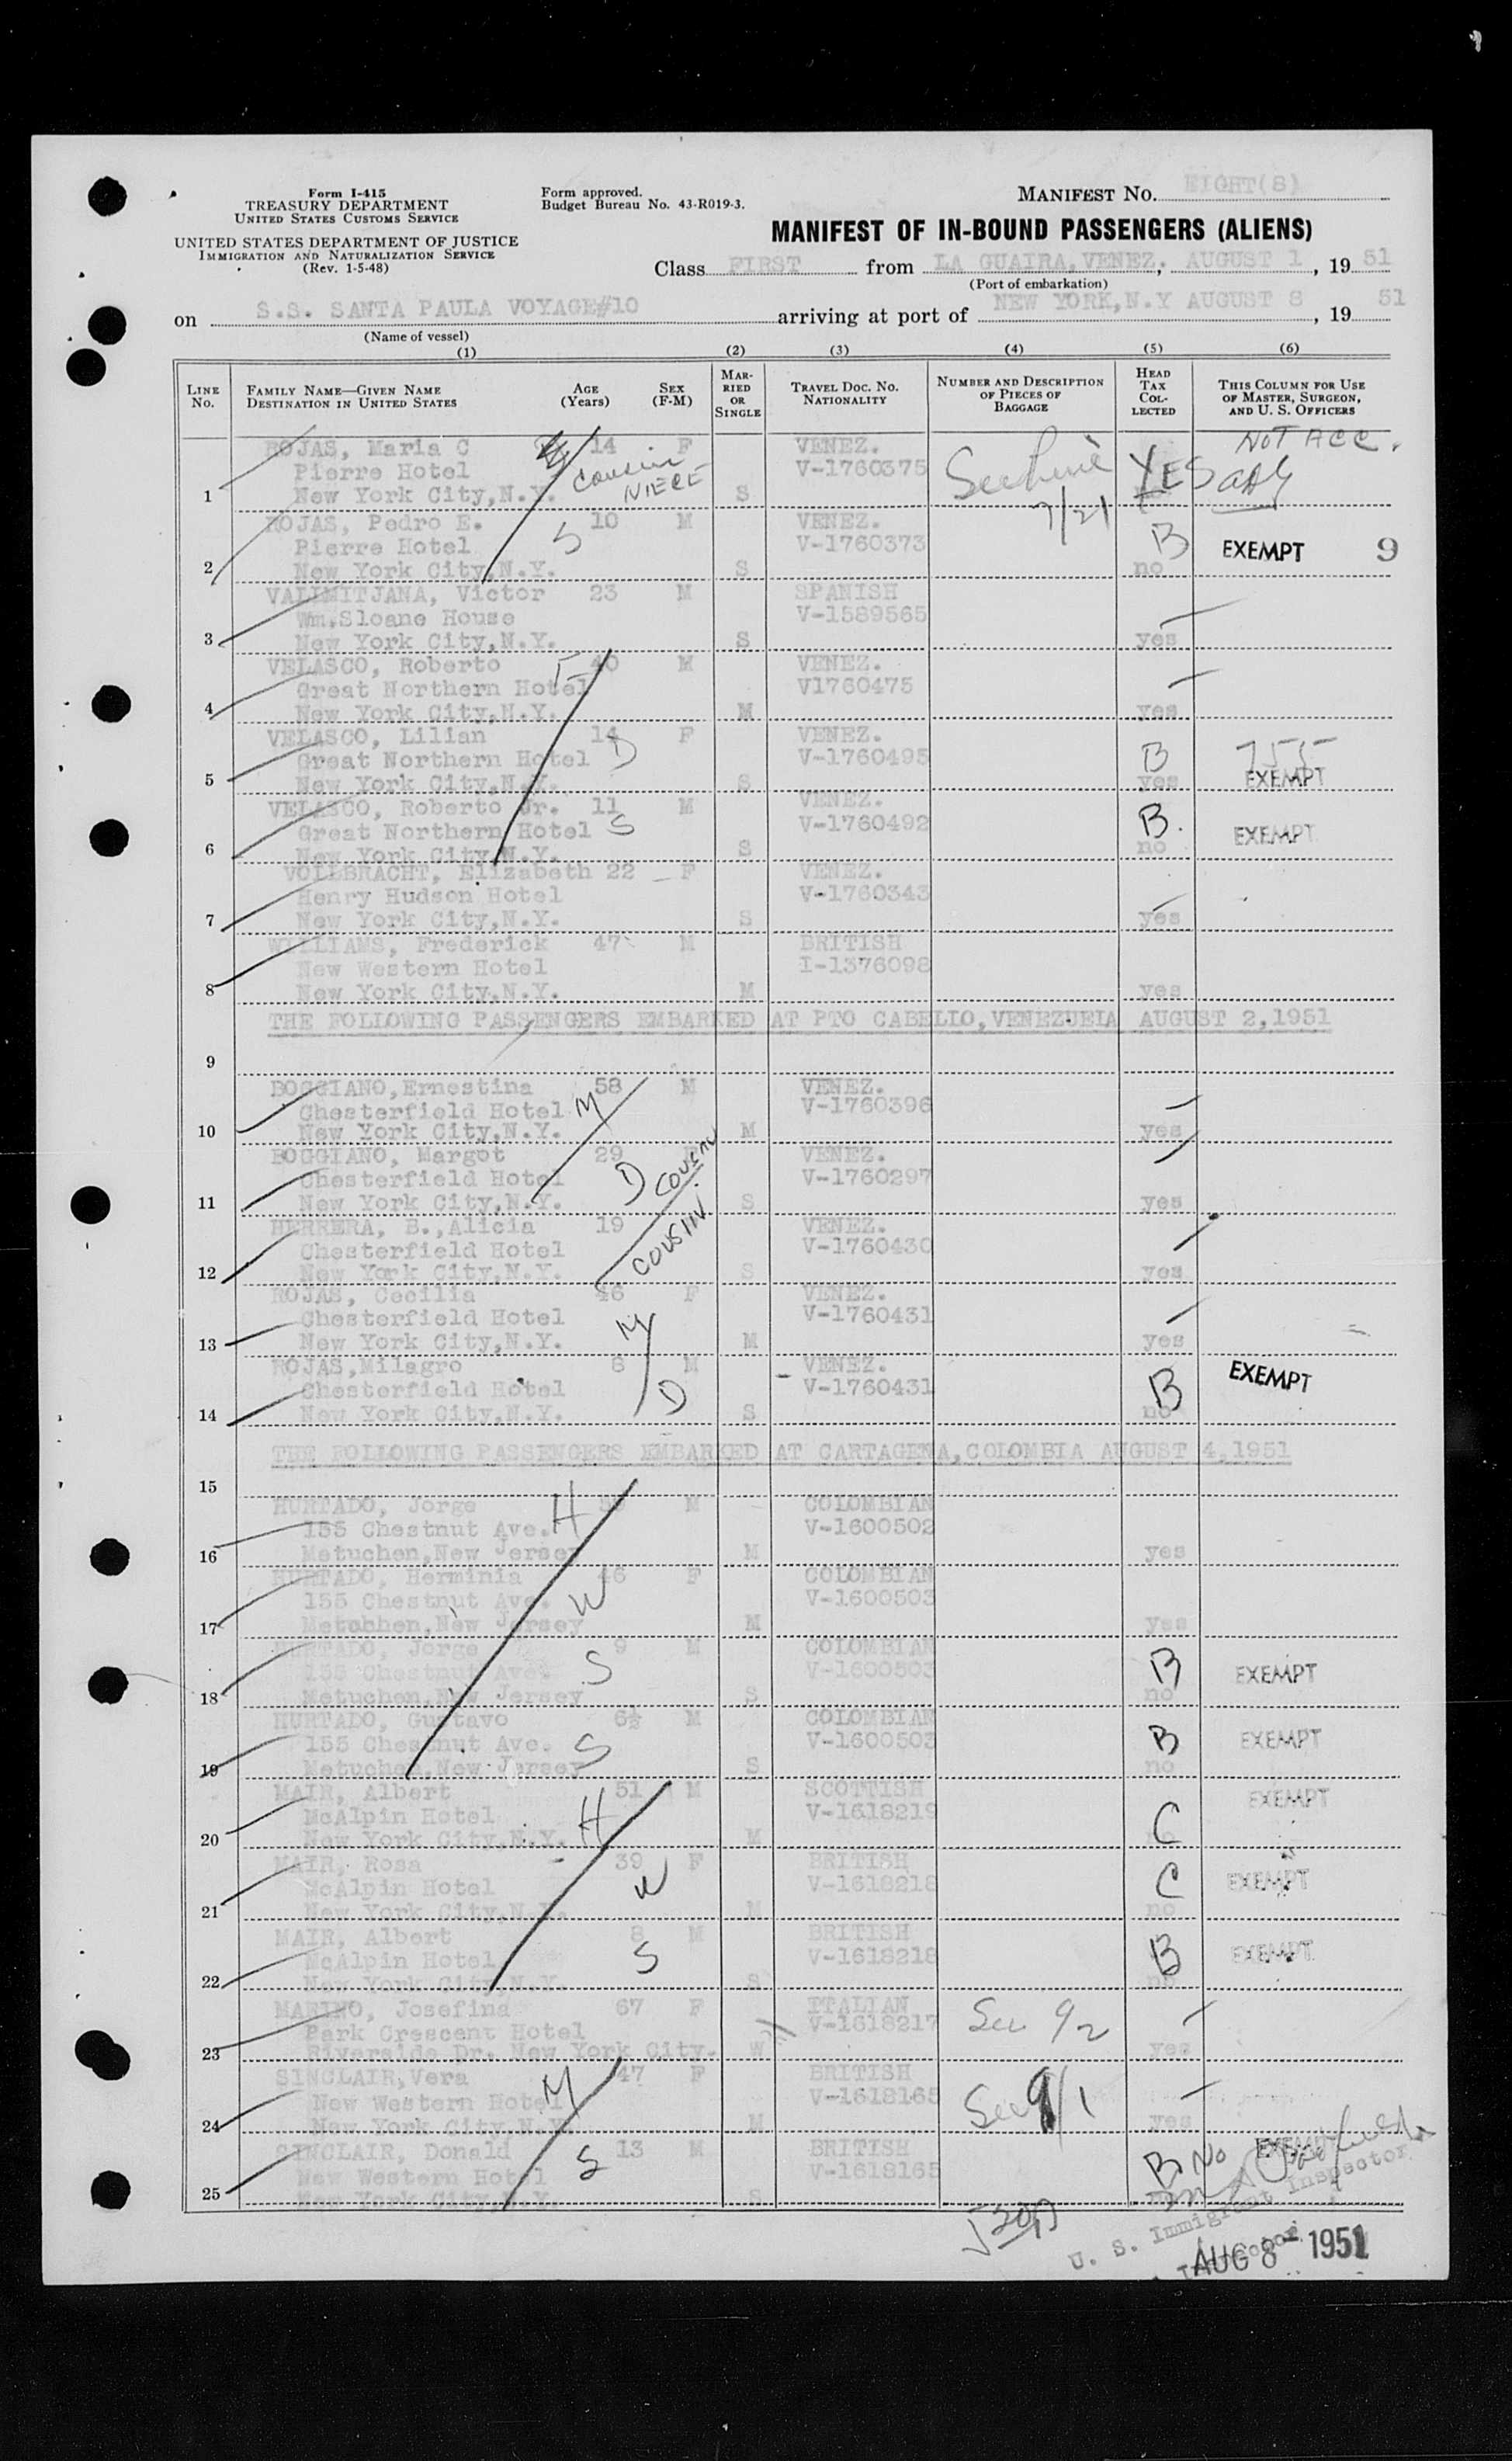 Form I-415
TREASURY DEPARTMENT
UNITED STATES CUSTOMS SERVICE
UNITED STATES DEPARTMENT OF JUSTICE
IMMIGRATION AND NATURALIZATION SERVICE
(Rev. 1-5-48)
Form approved.
Budget Bureau No. 43-R019-3.
MANIFEST No. EIGHT(8)
MANIFEST OF IN-BOUND PASSENGERS (ALIENS)
Class FIRST from LA GUAIRA, VENEZ. , AUGUST 1 , 19 51
(Port of embarkation)
on S.S. SANTA PAULA VOYAGE#10 arriving at port of NEW YORK,N.Y AUGUST 8 , 19 51
(Name of vessel)
(1) (2) (3) (4) (5) (6)
LINE No. FAMILY NAME—GIVEN NAME DESTINATION IN UNITED STATES AGE (Years) SEX (F-M) MARRIED OR SINGLE TRAVEL DOC. No. NATIONALITY NUMBER AND DESCRIPTION OF PIECES OF BAGGAGE HEAD TAX COLLECTED THIS COLUMN FOR USE OF MASTER, SURGEON, AND U. S. OFFICERS
ROJAS, Maria C 14 F VENEZ. NOT ACC.
Pierre Hotel Cousin V-1760375 YES
1 New York City,N.Y. NIECE S
7/21
ROJAS, Pedro E. 10 M VENEZ.
Pierre Hotel S V-1760373 B EXEMPT 9
2 New York City,N.Y. S no
VALIMITJANA, Victor 23 M SPANISH
Wm.Sloane House V-1589565
3 New York City,N.Y. S yes
VELASCO, Roberto F 40 M VENEZ.
Great Northern Hotel V1760475
4 New York City,N.Y. M yes
VELASCO, Lilian 14 F VENEZ.
Great Northern Hotel D V-1760495 B 755
5 New York City,N.Y. S yes EXEMPT
VELASCO, Roberto Jr. 11 M VENEZ.
Great Northern Hotel S V-1760492 B. EXEMPT
6 New York City,N.Y. S no
VOLLBRACHT, Elizabeth 22 F VENEZ.
Henry Hudson Hotel V-1760343
7 New York City,N.Y. S yes
WILLIAMS, Frederick 47 M BRITISH
New Western Hotel I-1376098
8 New York City,N.Y. M yes
THE FOLLOWING PASSENGERS EMBARKED AT PTO CABELLO,VENEZUELA AUGUST 2,1951
9
BOGGIANO,Ernestina 58 M VENEZ.
Chesterfield Hotel M V-1760396
10 New York City,N.Y. M yes
BOGGIANO, Margot 29 VENEZ.
Chesterfield Hotel D Cousin V-1760297
11 New York City,N.Y. S yes
HERRERA, B.,Alicia 19 VENEZ.
Chesterfield Hotel COUSIN V-1760430
12 New York City,N.Y. S yes
ROJAS, Cecilia 46 F VENEZ.
Chesterfield Hotel M V-1760431
13 New York City,N.Y. M yes
ROJAS,Milagro 8 M VENEZ.
Chesterfield Hotel D V-1760431 B EXEMPT
14 New York City,N.Y. S no
THE FOLLOWING PASSENGERS EMBARKED AT CARTAGENA,COLOMBIA AUGUST 4,1951
15
HURTADO, Jorge M COLOMBIAN
155 Chestnut Ave. H V-1600502
16 Metuchen,New Jersey M yes
HURTADO, Herminia 46 F COLOMBIAN
155 Chestnut Ave. W V-1600503
17 Metuchen,New Jersey M yes
HURTADO, Jorge 9 M COLOMBIAN
155 Chestnut Ave. S V-1600503 B EXEMPT
18 Metuchen,New Jersey S no
HURTADO, Gustavo 6½ M COLOMBIAN
155 Chestnut Ave. S V-1600503 B EXEMPT
19 Metuchen,New Jersey S no
MAIR, Albert 51 M SCOTTISH EXEMPT
McAlpin Hotel H V-1618219 C
20 New York City,N.Y. M no
MAIR, Rosa 39 F BRITISH
McAlpin Hotel W V-1618218 C EXEMPT
21 New York City,N.Y. M no
MAIR, Albert 8 M BRITISH
McAlpin Hotel S V-1618218 B EXEMPT
22 New York City,N.Y. S no
MARINO, Josefina 67 F ITALIAN
Park Crescent Hotel V-1618217 See 9/2
23 Riverside Dr. New York City. W yes
SINCLAIR,Vera 47 F BRITISH
New Western Hotel M V-1618165 See 9/1
24 New York City,N.Y. M yes
SINCLAIR, Donald 13 M BRITISH EXEMPT
New Western Hotel S V-1618165 B No
25 New York City,N.Y. S
U. S. Immigrant Inspector
AUG 8 - 1951